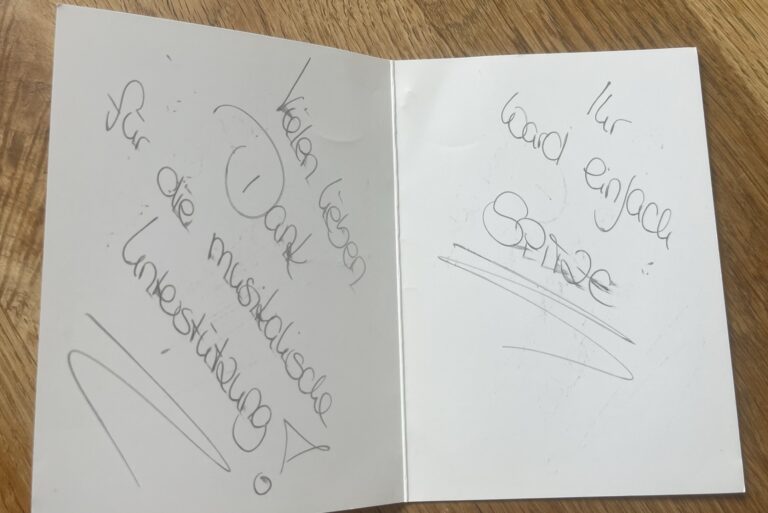 Vielen lieben
Dank
für die musikalische
Unterstützung!
Ihr
ward einfach
SPITZE